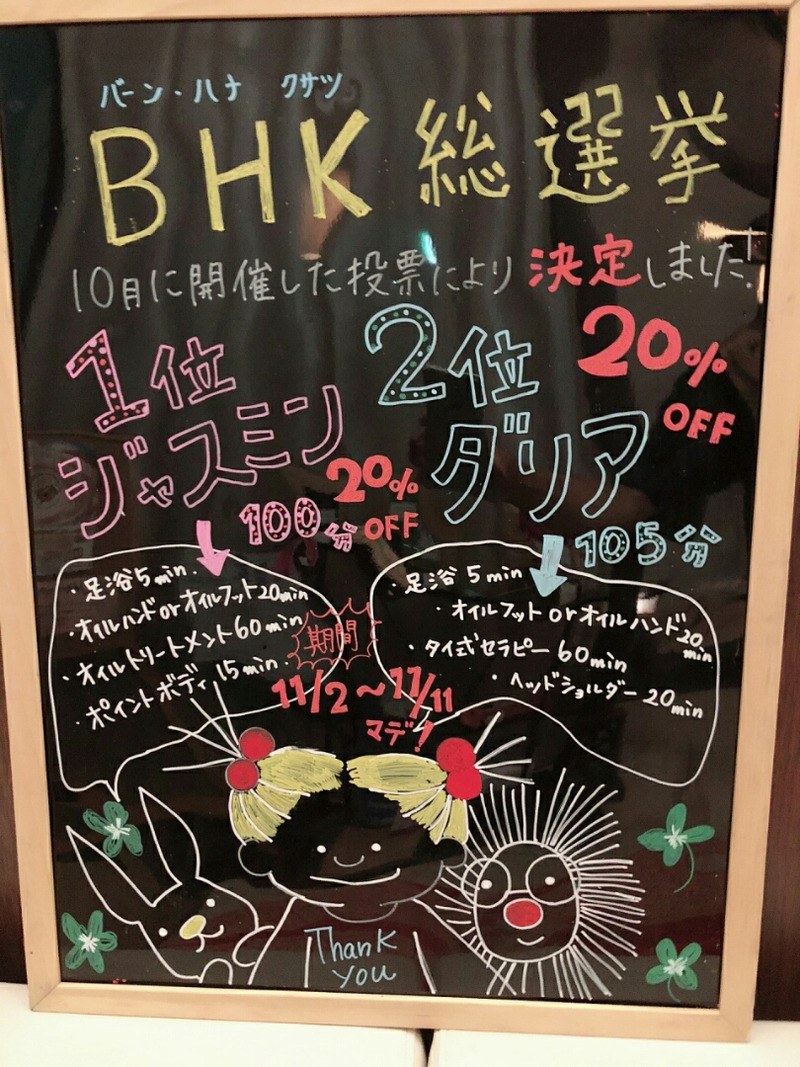 バーン・ハナ クサツ
BHK 総選挙
10月に開催した投票により決定しました!
1位
ジャスミン
20%
OFF
100分
・足浴5min.
・オイルハンドorオイルフット20min
・オイルトリートメント60min
・ポイントボディ15min.
2位
20%
OFF
ダリア
105分
・足浴5min
・オイルフットorオイルハンド20min
・タイ式セラピー60min
・ヘッドショルダー20min
期間
11/2~11/11
マデ!
Thank
you